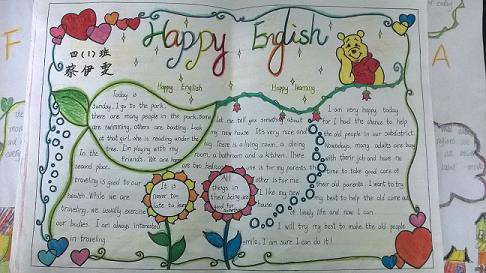 Happy English
四(1)班
蔡伊雯
Happy English
Happy learning
Today is
Sunday, I go to the park.
there are many people in the park. Some
are swimming, others are boating. Look
at that girl, she is reading under the
tree. I'm playing with my
friends. We are
In the
second place.
traveling is good to our
health. While we are
traveling, we usually exercise
our bodies. I am always interested
in traveling
let me tell you something about
my new house. It's very nice and
big. There is a living room, a dining
room, a bathroom and a kitchen. There
are two bedrooms. one is for my parents
other is for me.
I like my new
house
It is
never too
late to learn
All
things in
their being are
good for
I am very happy today
for I had the chance to help
the old people in our subdistrict.
Nowadays, many adults are busy
with their job and have no
time to take good care of
their old parents. I want to try
my best to help the old come on
of lovely life and now I can
I will try my best to make the old people
smile. I am sure I can do it!